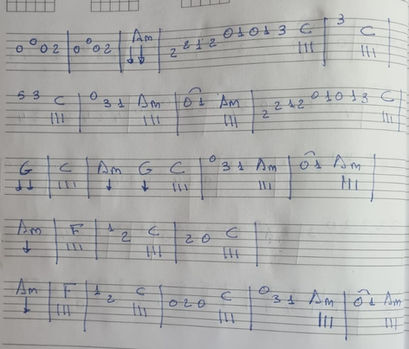 0 0 0 2 | 0 0 0 2 | Am ↓↓ | 2 2 1 2 0 1 0 1 3 C ||| | 3 C |||
5 3 C ||| | 0 3 1 Am ||| | 0 1 Am ||| | 2 2 1 2 0 1 0 1 3 C |||
G ↓↓ | C ||| | Am ↓ G ↓ C ||| | 0 3 1 Am ||| | 0 1 Am ||| |
Am ↓ | F ||| | 1 2 C ||| | 2 0 C ||| |
Am ↓ | F ||| | 1 2 C ||| | 0 2 0 C ||| | 0 3 1 Am ||| | 0 1 Am |||